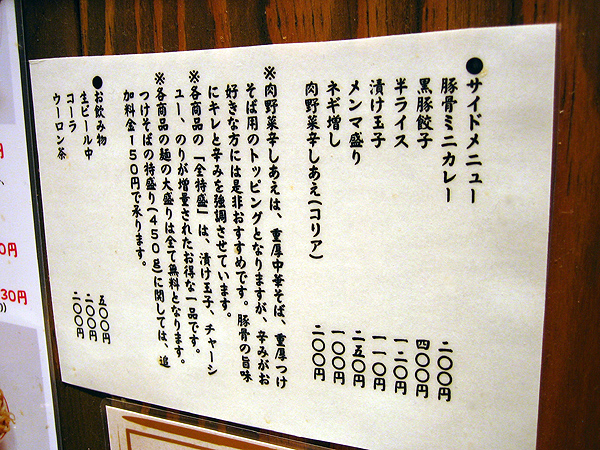 ●サイドメニュー
豚骨ミニカレー 二〇〇円
黒豚餃子 四〇〇円
半ライス 一二〇円
漬け玉子 一一〇円
メンマ盛り 二五〇円
ネギ増し 一〇〇円
肉野菜辛しあえ(コリア) 二〇〇円
※肉野菜辛しあえは、重厚中華そば、重厚つけ
そば用のトッピングとなりますが、辛みがお
好きな方には是非おすすめです。豚骨の旨味
にキレと辛みを強調させています。
※各商品の「全特盛」は、漬け玉子、チャーシ
ュー、のりが増量されたお得な一品です。
※各商品の麺の大盛りは全て無料となります。
つけそばの特盛り(450g)に関しては、追
加料金150円で承ります。
●お飲み物
生ビール中 五〇〇円
コーラ 二〇〇円
ウーロン茶 二〇〇円
円
0円
30円